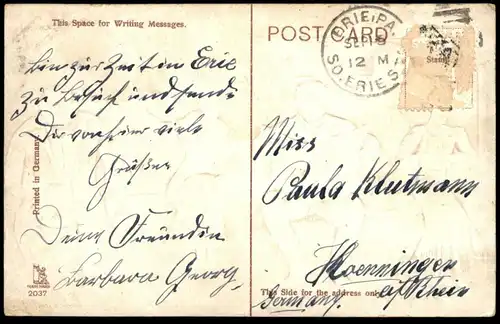 This Space for Writing Messages.
Bin zur Zeit in Erie
zu Besuch und sende
Dir von hier viele
Grüße
Deine Freundin
Barbara Georg
Printed in Germany
2037
POST CARD
ERIE, PA.
SEP
12 M
SO. ERIE S
Stamp
Miss
Paula Klutmann
Hoenningen
a/Rhein
Germany.
This Side for the address only